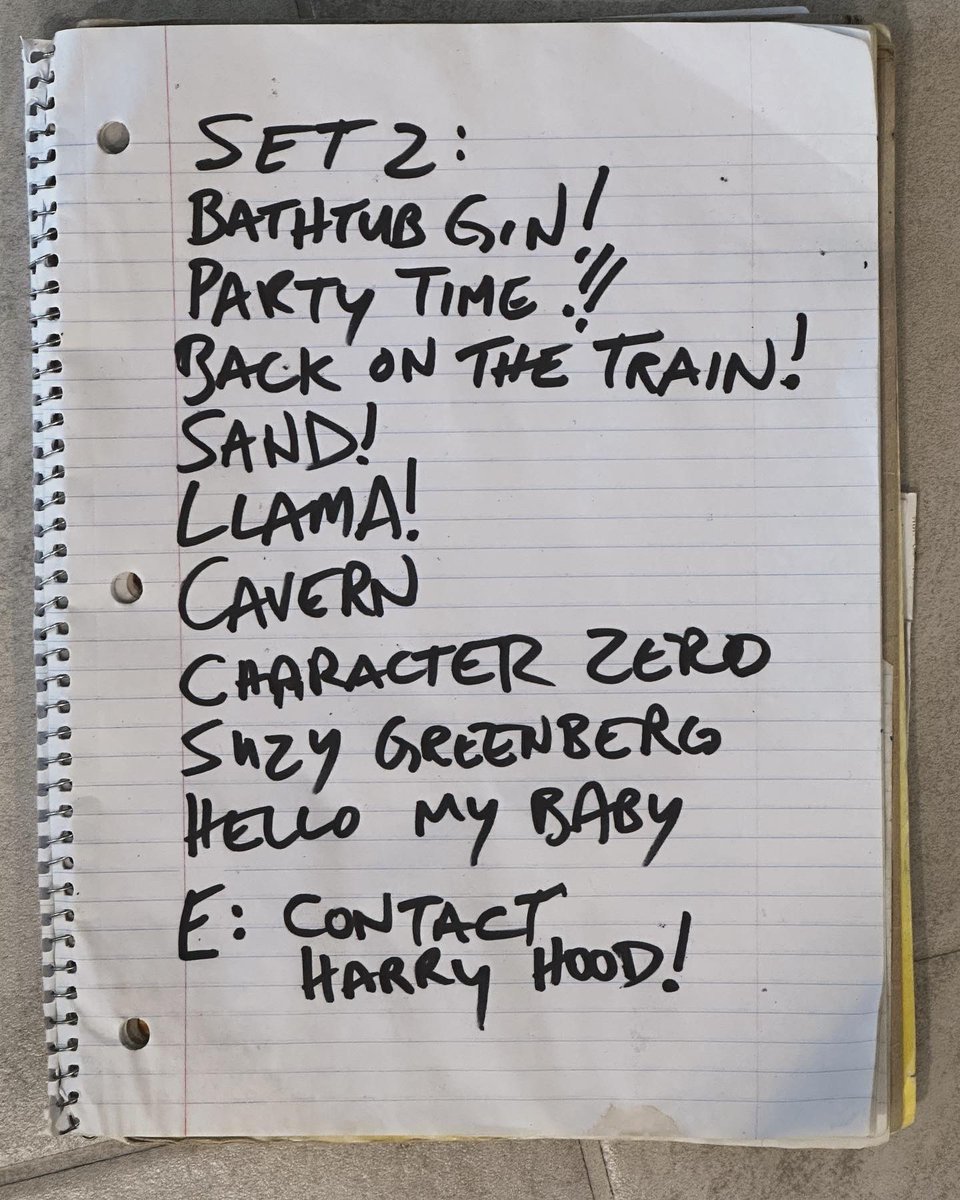 SET 2:
BATHTUB GIN!
PARTY TIME!!!
BACK ON THE TRAIN!
SAND!
LLAMA!
CAVERN
CHARACTER ZERO
SUZY GREENBERG
HELLO MY BABY
E: CONTACT
HARRY HOOD!